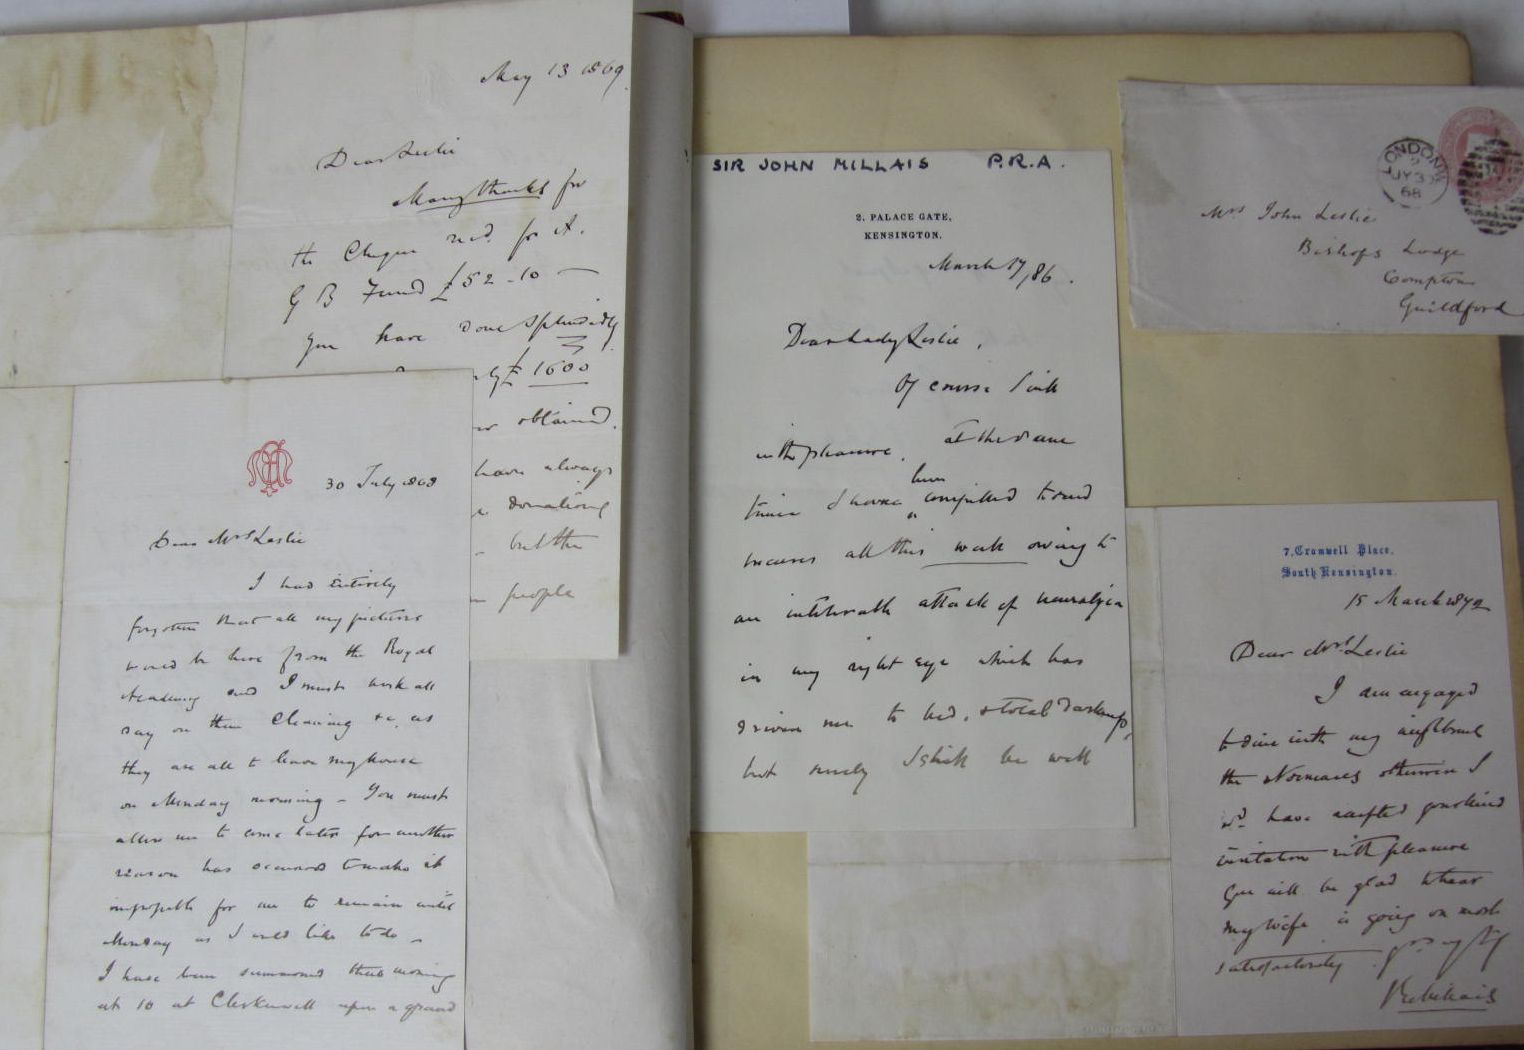 May 13 1869
Dear Leslie
Many thanks for
the Cheque recd. for A.
G B Fund £52-10
you have done splendidly
£1600
obtained.
have always
donations
but the
people
30 July 1868
Dear Mrs Leslie
I had entirely
forgotten that all my pictures
would be here from the Royal
Academy and I must work all
day on them cleaning &c. as
they are all to leave my house
on Monday morning - You must
allow me to come later for another
reason has occurred to make it
impossible for me to remain until
Monday as I should like to do -
I have been summoned this morning
at 10 at Clerkenwell upon a grand
SIR JOHN MILLAIS P.R.A.
2, PALACE GATE,
KENSINGTON.
March 17/86.
Dear Lady Leslie,
Of course I will
with pleasure, at the same
time I have been compelled to send
excuses all this week owing to
an attack of neuralgia
in my right eye which has
driven me to bed, & total darkness,
but surely I shall be well
LONDON W
2
JY 30
68
Mrs John Leslie
Bishops Lodge
Compton
Guildford
7, Cromwell Place,
South Kensington.
15 March 1872
Dear Mrs Leslie
I am engaged
to dine with my neighbours
the otherwise I
wd. have accepted your kind
invitation with pleasure
You will be glad to hear
my wife is going on most
satisfactorily
JE Millais